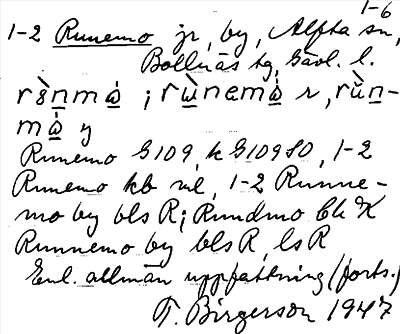 1-6
1-2 Runemo jr, by, Alfta sn,
Bollnäs tg, Gävl. l.
rs̀nmá̤ ; rùnemá̤ r, rùn-
má̤ y
Runemo G109, k G109SO, 1-2
Runemo kb ul, 1-2 Runne-
mo by bls R; Rundmo Ch K
Runnemo by bls R, ls R
Enl. allmän uppfattning (forts.)
T. Birgerson 1947